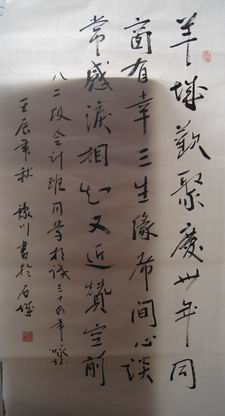 羊城歡聚慶卅年同
窗有幸三生緣席間心談
常感淚相知又近贊空前
八二級会计班同學相識三十年咏怀
壬辰年秋 書於石城